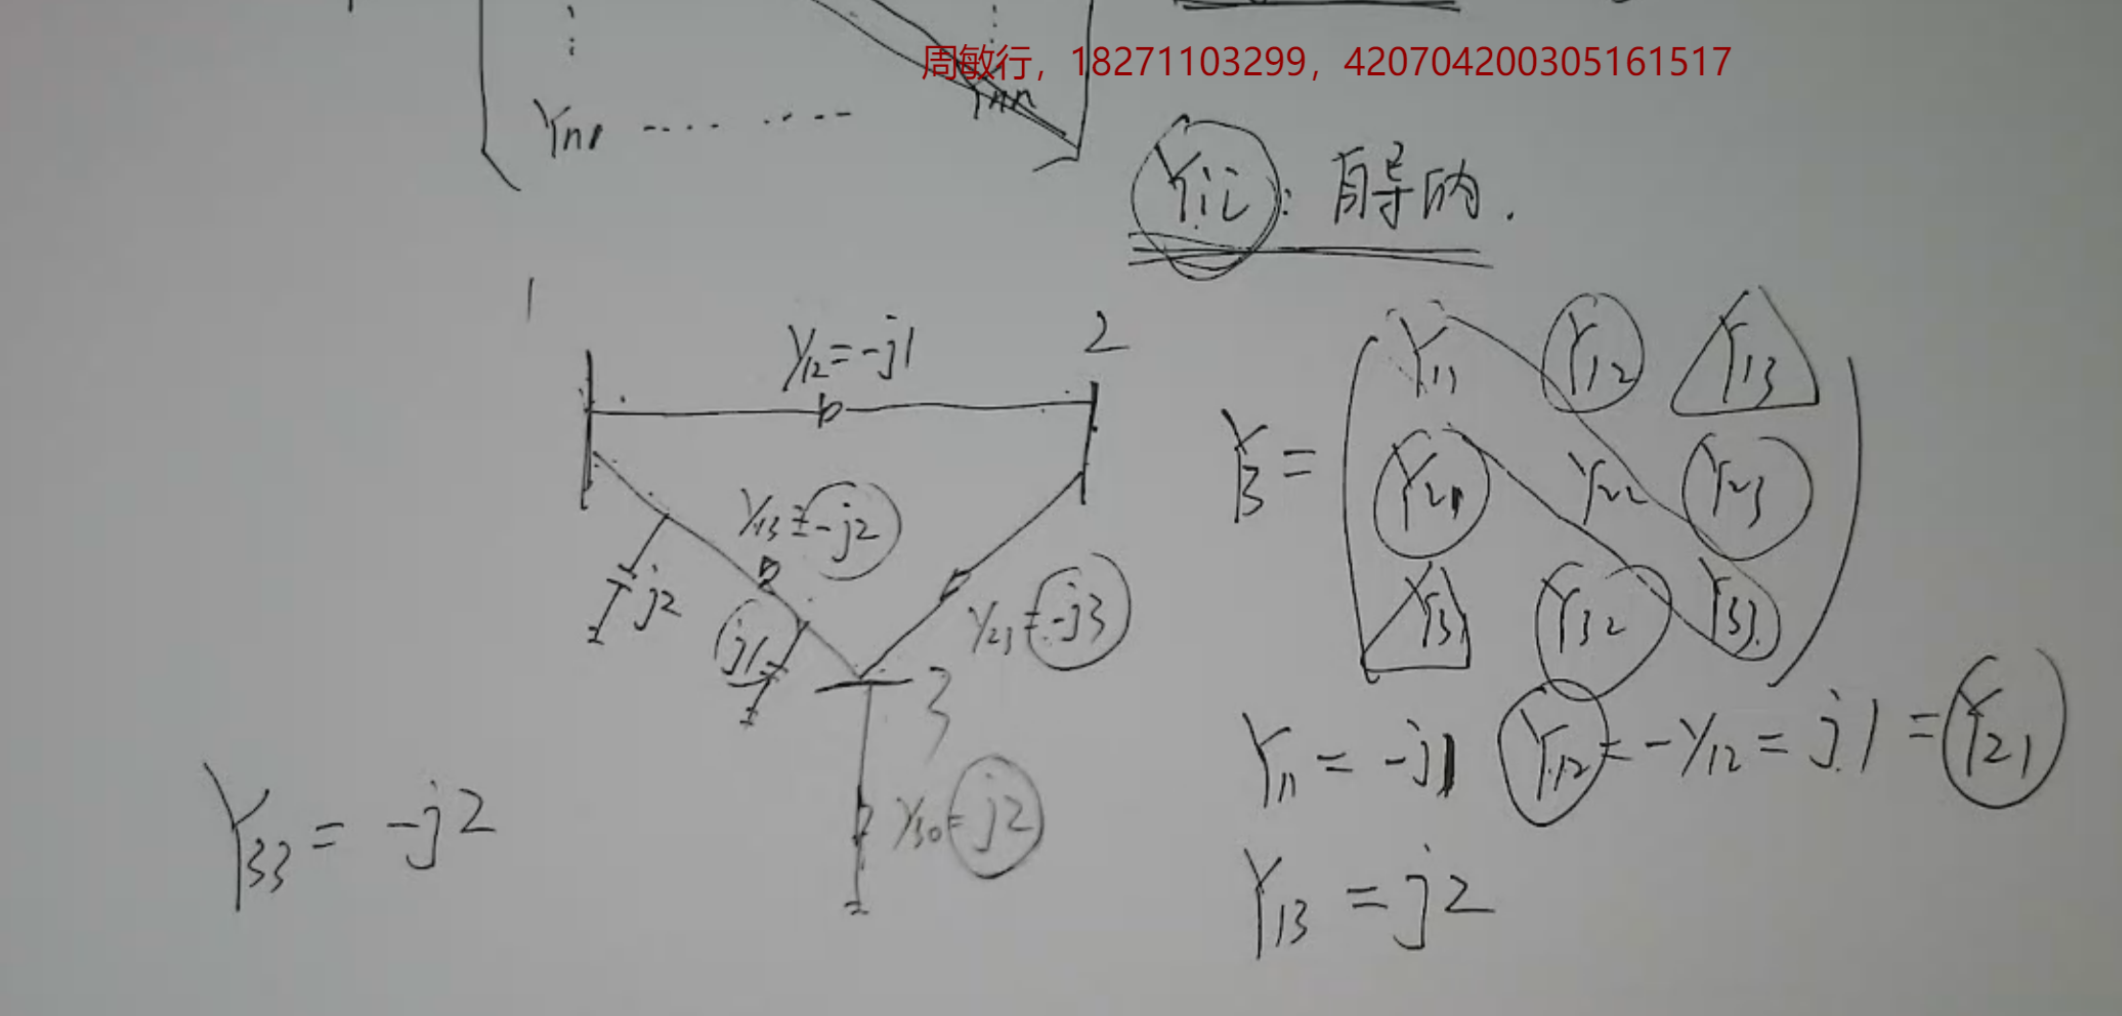 周敏行，18271103299，420704200305161517
Yn1 ---- ---- Ynn
Yii：自导纳.
1
2
y12=-j1
y13=-j2
j2
j1
y23=-j3
3
y30=j2
YB = ( Y11 Y12 Y13
Y21 Y22 Y23
Y31 Y32 Y33 )
Y11 = -j1 Y12 = -y12 = j1 = Y21
Y33 = -j2
Y13 = j2